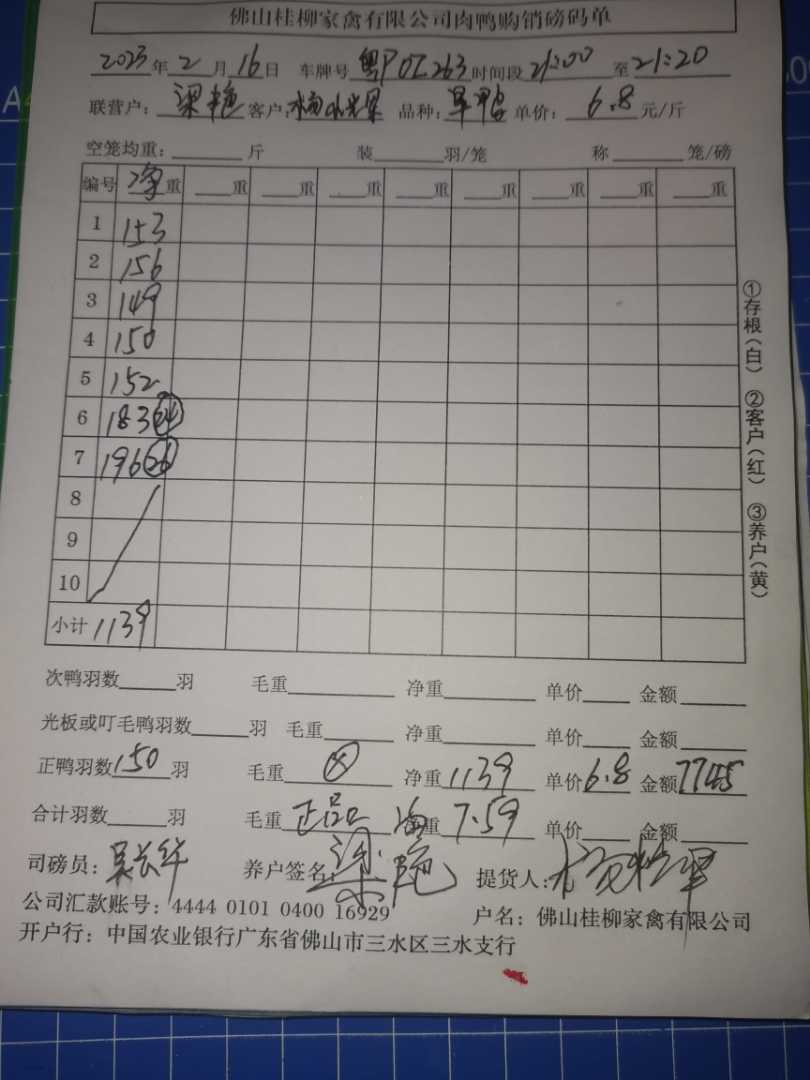 佛山桂柳家禽有限公司肉鸭购销磅码单
2023年2月16日 车牌号 粤P0Z263 时间段 21:00 至 21:20
联营户：梁艳 客户： 品种：旱鸭 单价：6.8元/斤
空笼均重：______斤 装______羽/笼 称______笼/磅
编号 净重 ___重 ___重 ___重 ___重 ___重 ___重 ___重 ___重
1 153
2 156
3 149
4 150
5 152
6 183 24
7 196 26
8
9
10
小计 1139
①存根(白) ②客户(红) ③养户(黄)
次鸭羽数______羽 毛重______ 净重______ 单价______ 金额______
光板或叮毛鸭羽数______羽 毛重______ 净重______ 单价______ 金额______
正鸭羽数150羽 毛重 净重1139 单价6.8 金额7745
合计羽数______羽 毛重 正品 净重 7.59 单价______ 金额______
司磅员：吴长华 养户签名：梁艳 提货人：
公司汇款账号：4444 0101 0400 16929 户名：佛山桂柳家禽有限公司
开户行：中国农业银行广东省佛山市三水区三水支行